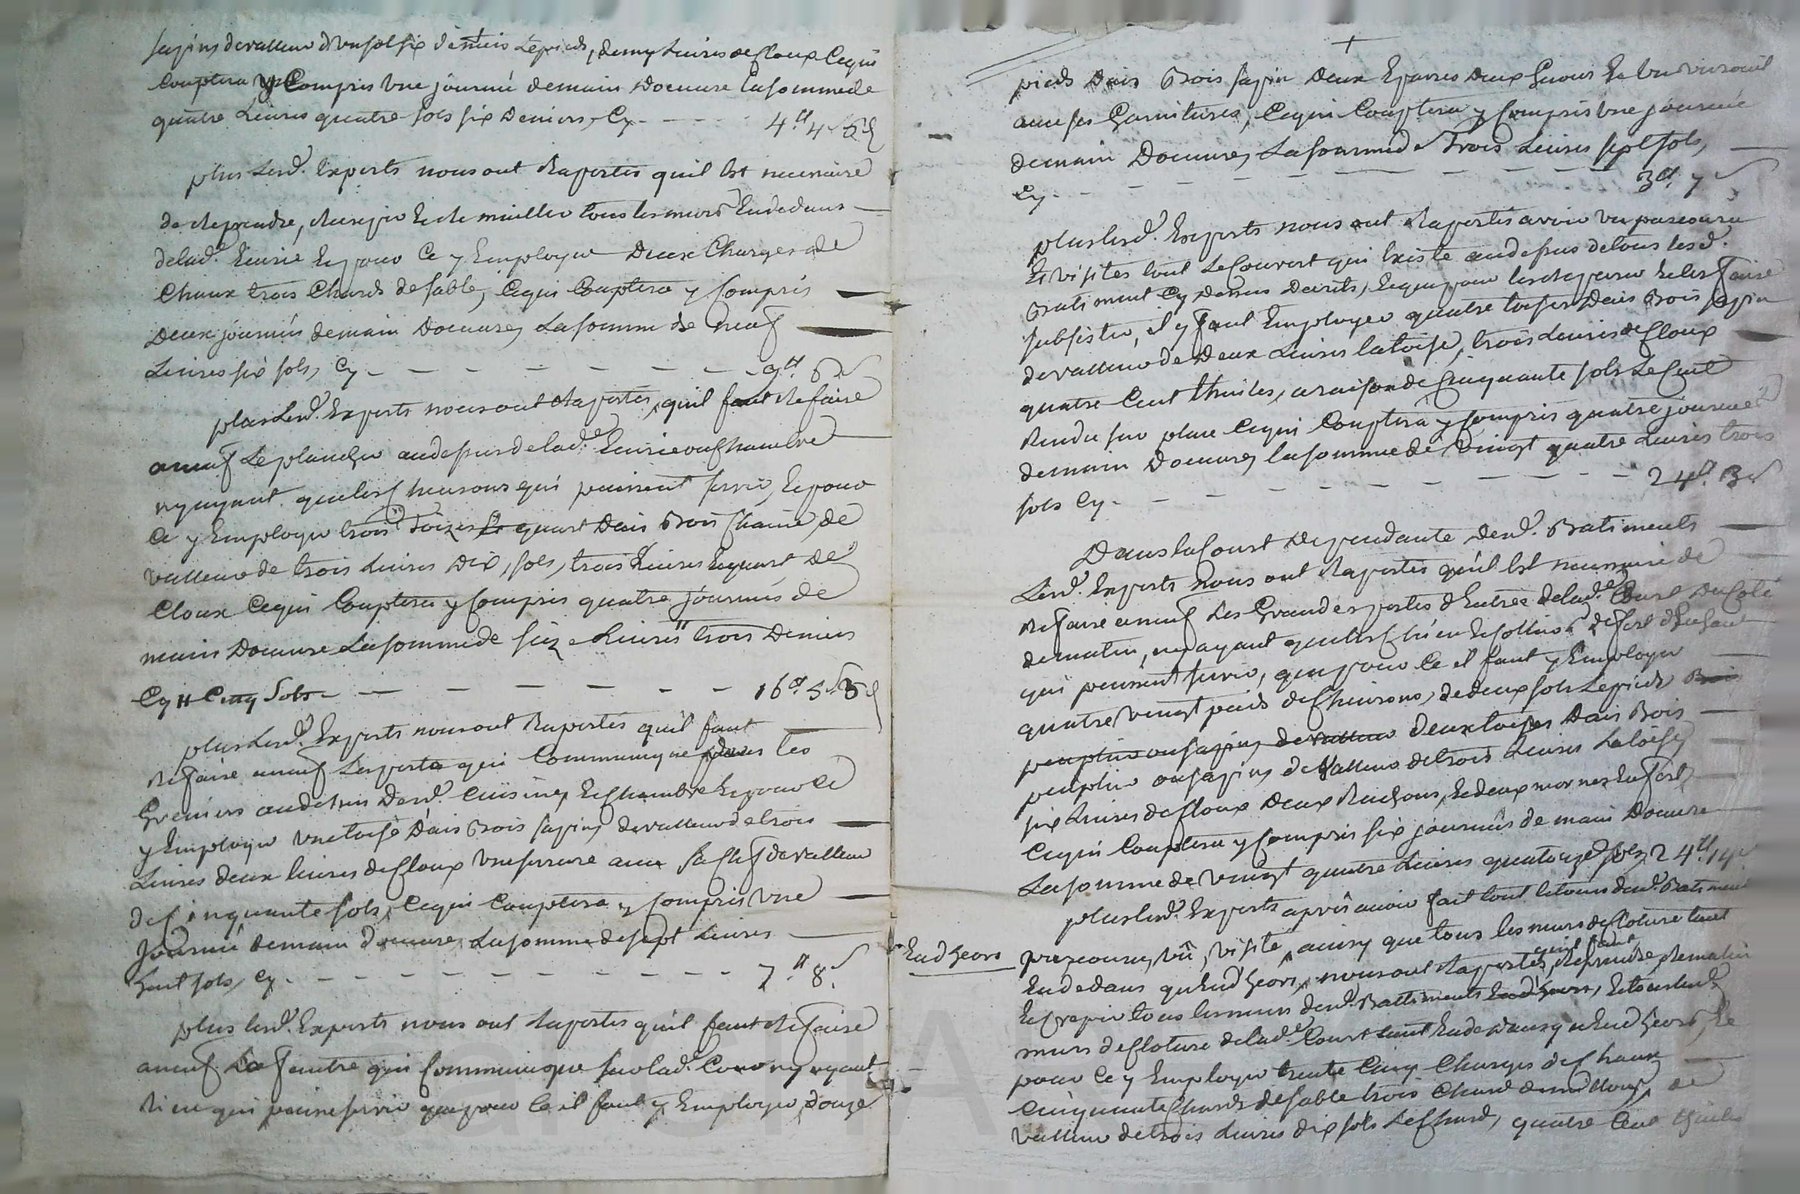 sapins de valleur d'un sol six deniers le pieds, demy Livres de Cloux Ce qui
Couptera y Compris une journé de main Doeuvre la somme de
quatre Livres quatre sols six Deniers, Cy - - - - 4lt 4s 6d
plus Lesd. Experts nous ont Raportés quil Est necessaire
de Reprendre, Recrepir Et Remailler tous les murs Endedans
delad. Ecurie Et pour Ce y Employer Deux Charges de
Chaux trois Chards de sable, Ce qui Couptera y Compris
Deux journés de main Doeuvres La somme de neuf
Livres six sols, Cy - - - - - - - 9lt 6s
plus Lesd. Experts nous ont Raportés, quil faut Refaire
aneuf Le plancher audessus delad. Ecurie ou chambre
ny ayant quelques chevrons qui puissent servir, Et pour
Ce y Employer trois Toizes Et quart Dais Bois Chaine, de
valleur de trois Livres Dix, sols, trois Livres Et quart De
Cloux Ce qui Couptera y Compris quatre journés de
main Doeuvre La somme de seize Livres " trois Deniers
Cy " Cinq Sols - - - - - - 16lt 5s 3d
plus Lesd. Experts nous ont Raportés quil faut
Refaire aneuf Les porte qui Communique dans les
Greniers audessus Desd. Cuisines Et chambre Et pour Ce
y Employer une toise Dais Bois sapins de valleur de trois
Livres deux livres de Cloux une serrure avec sa Clef de valleur
de Cinquante sols, Ce qui Couptera y Compris une
Journé de main doeuvre, La somme de sept Livres
huit sols, Cy - - - - - - - 7lt 8s
plus lesd. Experts nous ont Raportés quil faut Refaire
aneuf La feneitre qui Communique sur lad. Cour ny ayant
Rien qui puisse servir que pour Ce il faut y Employer, Douze
pieds Dais Bois sapin Deux Eparres Deux Gonds Et un
avec ses Garnitures, Ce qui Couptera y Compris une journée
demain Doeuvres La somme de Trois Livres sept sols,
Cy - - - - - - - 3lt 7s
plus lesd. Experts nous ont Raportés avoir vu parcouru
Et visités tout Le Couvert qui Existe audessus de tous lesd.
Batiment Cy Dessus Décrits, Et que pour les Reparer Et les faire
subsister, il y faut Employer quatre toises Dais Bois sapin
de valleur de Deux Livres la toise, trois Livres de Cloux
quatre Cent thuiles, a raison de Cinquante sols Le Cent
Rendu sur place Ce qui Couptera y Compris quatre journés
demain Doeuvres la somme de vingt quatre Livres trois
sols Cy - - - - - - - 24lt 3s
Dans la Court Dependante Desd. Batiments
Lesd. Experts nous ont Raportés quil Est necessaire de
Refaire aneuf Les Grandes portes d'Entrée delad. Court Du Coté
de matin, ny ayant quelques
qui puissent servir, que pour Ce il faut y Employer
quatre vingt pieds de chevrons, de deux sols Le pieds Bois
peuplier ou sapins de valleur deux toizes Dais Bois
peuplier ou sapins de valleur de trois Livres La toise
six Livres de Cloux Deux
Ce qui Couptera y Compris six journés de main Doeuvre
La somme de vingt quatre Livres quatorze sols 24lt 14s
plus lesd. Experts après avoir fait tout le tour desd. Batiment
Endehors parcourus, vu, visité, ainsy que tous les murs de Cloture tant
Endedans qu'Endehors, nous ont Raportés quil faut Reprendre, Remailler
Et Crepir tous les murs desd. Battiments Endehors, Et tous lesd.
murs de Cloture delad. Court tant Endedans qu'Endehors, Et
pour Ce y Employer trente Cinq Charges de Chaux
Cinquante Chards de sable trois Chard de moellons de
valleur de trois Livres dix sols Le Chard, quatre Cent thuiles